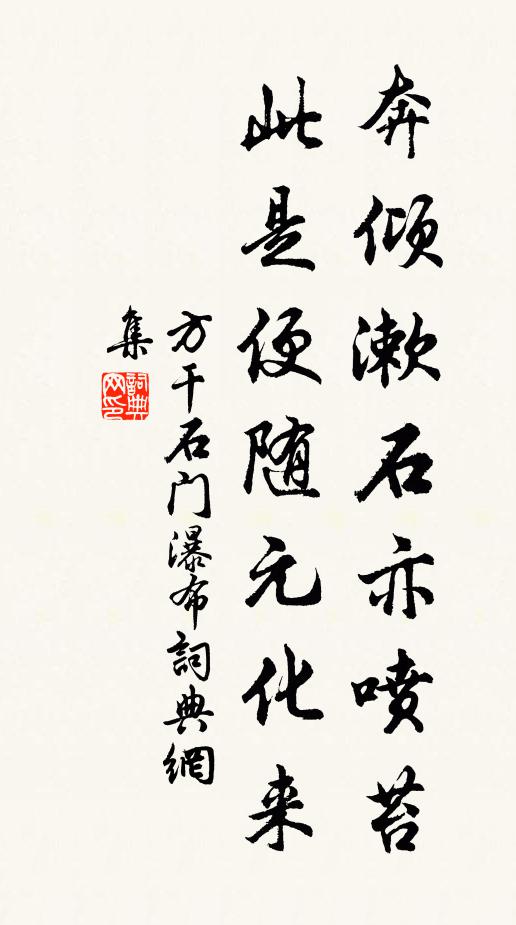 奔倾漱石亦喷苔
此是便随元化来
方干石门瀑布詞典網
集
詞典网印